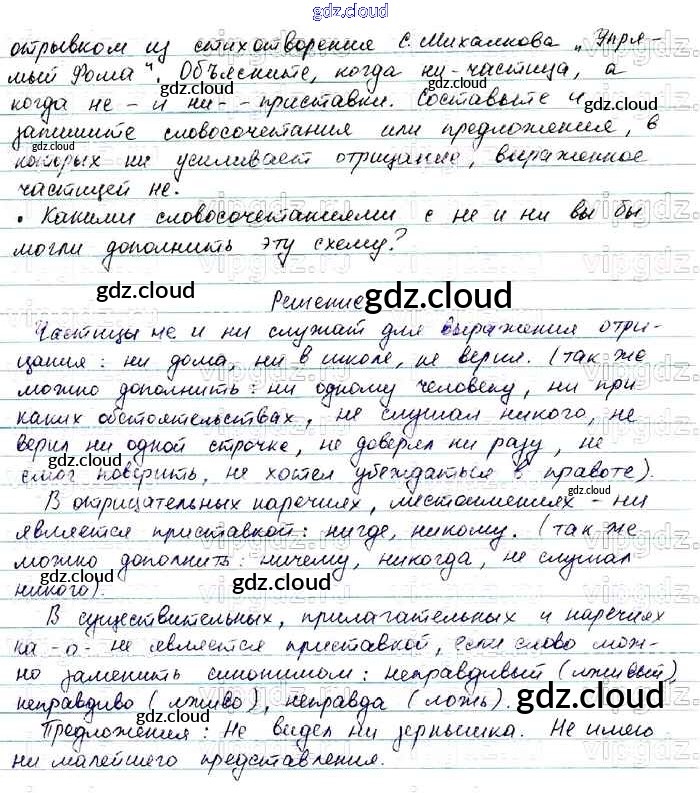 gdz.cloud
отрывком из стихотворения С. Михалкова „Упря-
мый Фома". Объясните, когда ни - частица, а
когда не - и ни - - приставки. Составьте и
запишите словосочетания или предложения, в
которых ни усиливает отрицание, выраженное
частицей не.
• Какими словосочетаниями с не и ни вы бы
могли дополнить эту схему?
Решение
Частицы не и ни служат для выражения отри-
цания: ни дома, ни в школе, не верил. (так же
можно дополнить: ни одному человеку, ни при
каких обстоятельствах, не слушал никого, не
верил ни одной строчке, не доверял ни разу, не
смог поверить, не хотел убеждаться в правоте).
В отрицательных наречиях, местоимениях - ни
является приставкой: нигде, никому. (так же
можно дополнить: ничему, никогда, не слушал
никого).
В существительных, прилагательных и наречиях
на -о- не является приставкой, если слово мож-
но заменить синонимом: неправдивый (лживый),
неправдиво (лживо), неправда (ложь).
Предложения: Не видел ни зернышка. Не имею
ни малейшего представления.